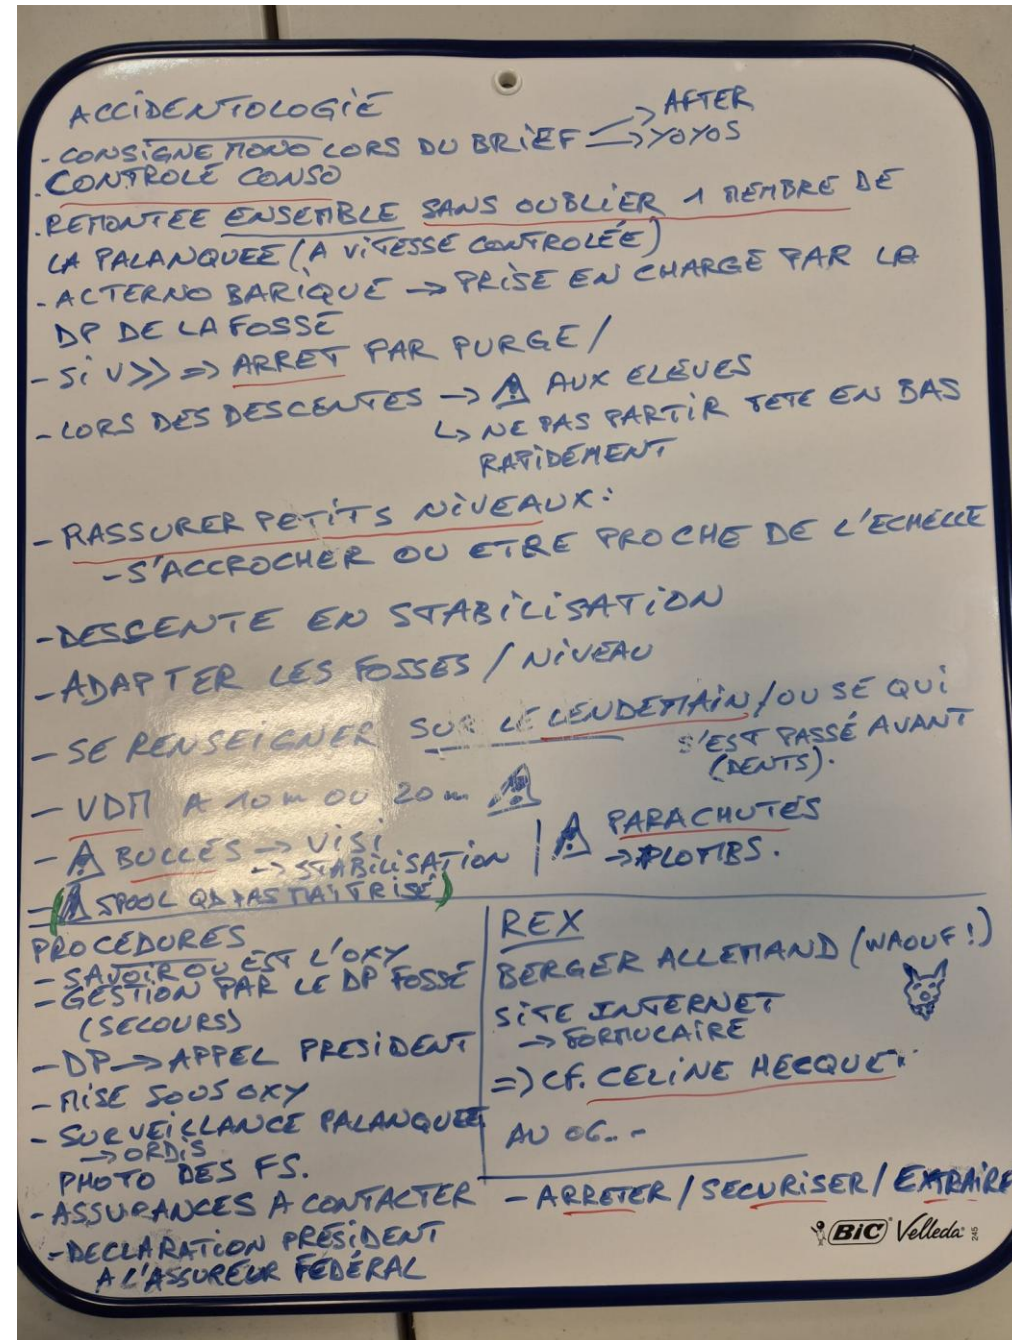 ACCIDENTOLOGIE
- CONSIGNE MONO LORS DU BRIEF → AFTER
→ YOYOS
. CONTROLE CONSO
. REMONTEE ENSEMBLE SANS OUBLIER 1 MEMBRE DE
LA PALANQUEE (A VITESSE CONTROLÉE)
- ACTERNO BARIQUE → PRISE EN CHARGE PAR LE
DP DE LA FOSSE
- Si V >> => ARRET PAR PURGE /
- LORS DES DESCENTES → ⚠ AUX ELEVES
↳ NE PAS PARTIR TETE EN BAS
RAPIDEMENT
- RASSURER PETITS NIVEAUX :
- S'ACCROCHER OU ETRE PROCHE DE L'ECHELLE
- DESCENTE EN STABILISATION
- ADAPTER LES FOSSES / NIVEAU
- SE RENSEIGNER SUR LE LENDEMAIN / OU SE QUI
S'EST PASSÉ AVANT
(DENTS).
- VDM A 10 m OU 20 m ⚠
- ⚠ BULLES → VISI
→ STABILISATION
| ⚠ PARACHUTES
→ PLOMBS.
- (⚠ SPOOL QD PAS MAITRISÉ)
PROCEDURES
- SAVOIR OU EST L'OXY
- GESTION PAR LE DP FOSSE
(SECOURS)
- DP → APPEL PRESIDENT
- MISE SOUS OXY
- SURVEILLANCE PALANQUEE
→ ORDIS
PHOTO DES FS.
- ASSURANCES A CONTACTER
- DECLARATION PRÉSIDENT
A L'ASSUREUR FÉDÉRAL
REX
BERGER ALLEMAND (WAOUF !)
SITE INTERNET
→ FORMULAIRE
=> CF. CELINE HECQUET.
AU 06...
- ARRETER / SECURISER / EXTRAIRE
BIC Velleda 245